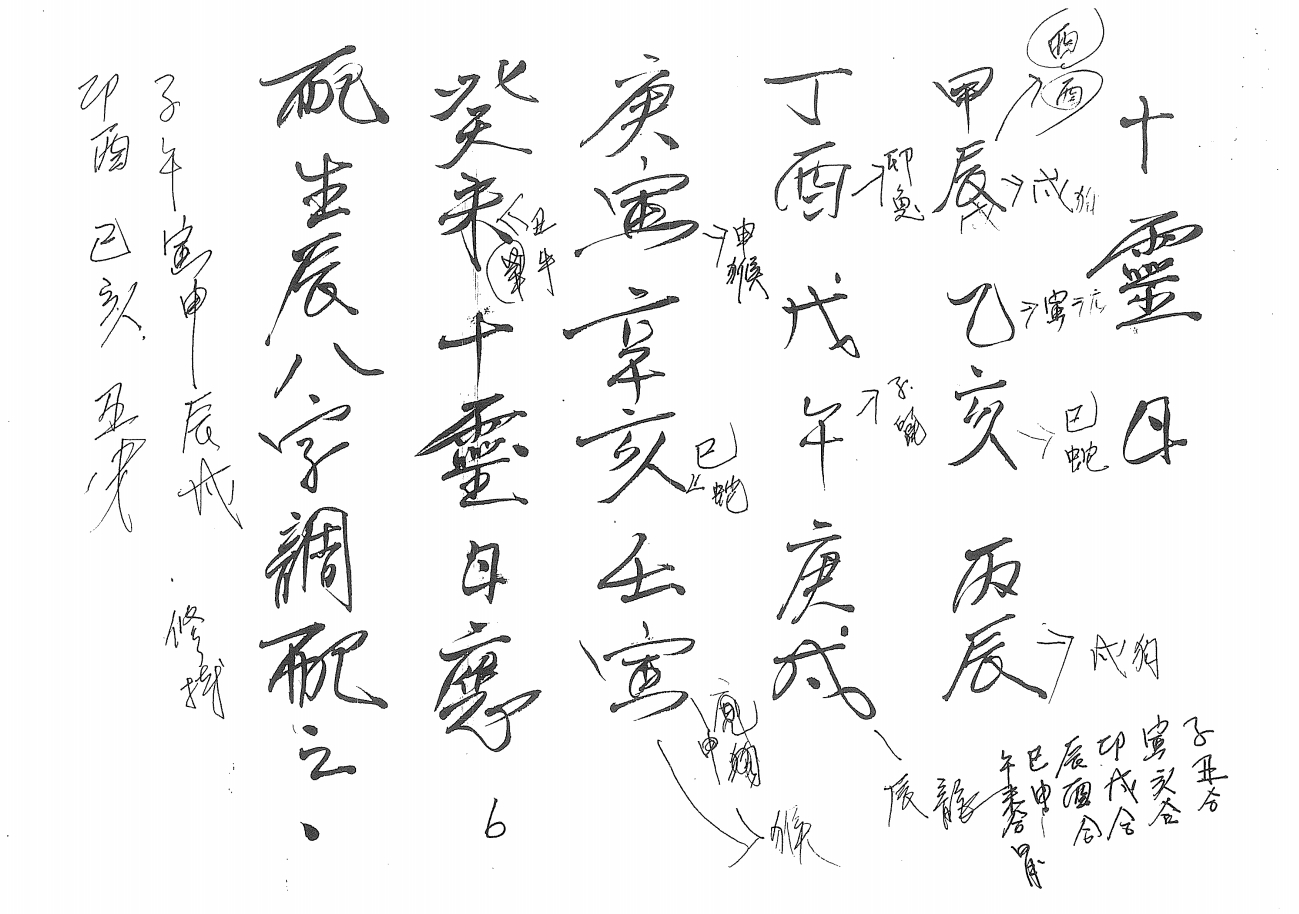 十靈日
酉
酉
甲辰乙亥丙辰
戌狗
寅
巳蛇
戌狗
丁酉戊午庚戌
卯兔
子鼠
辰龍
庚寅辛亥壬寅
申猴
巳蛇
申
猴
癸未十靈日應
丑牛
6
配生辰八字調配之.
子午寅申辰戌
卯酉巳亥丑未
子丑合
寅亥合
卯戌合
辰酉合
巳申
午未合